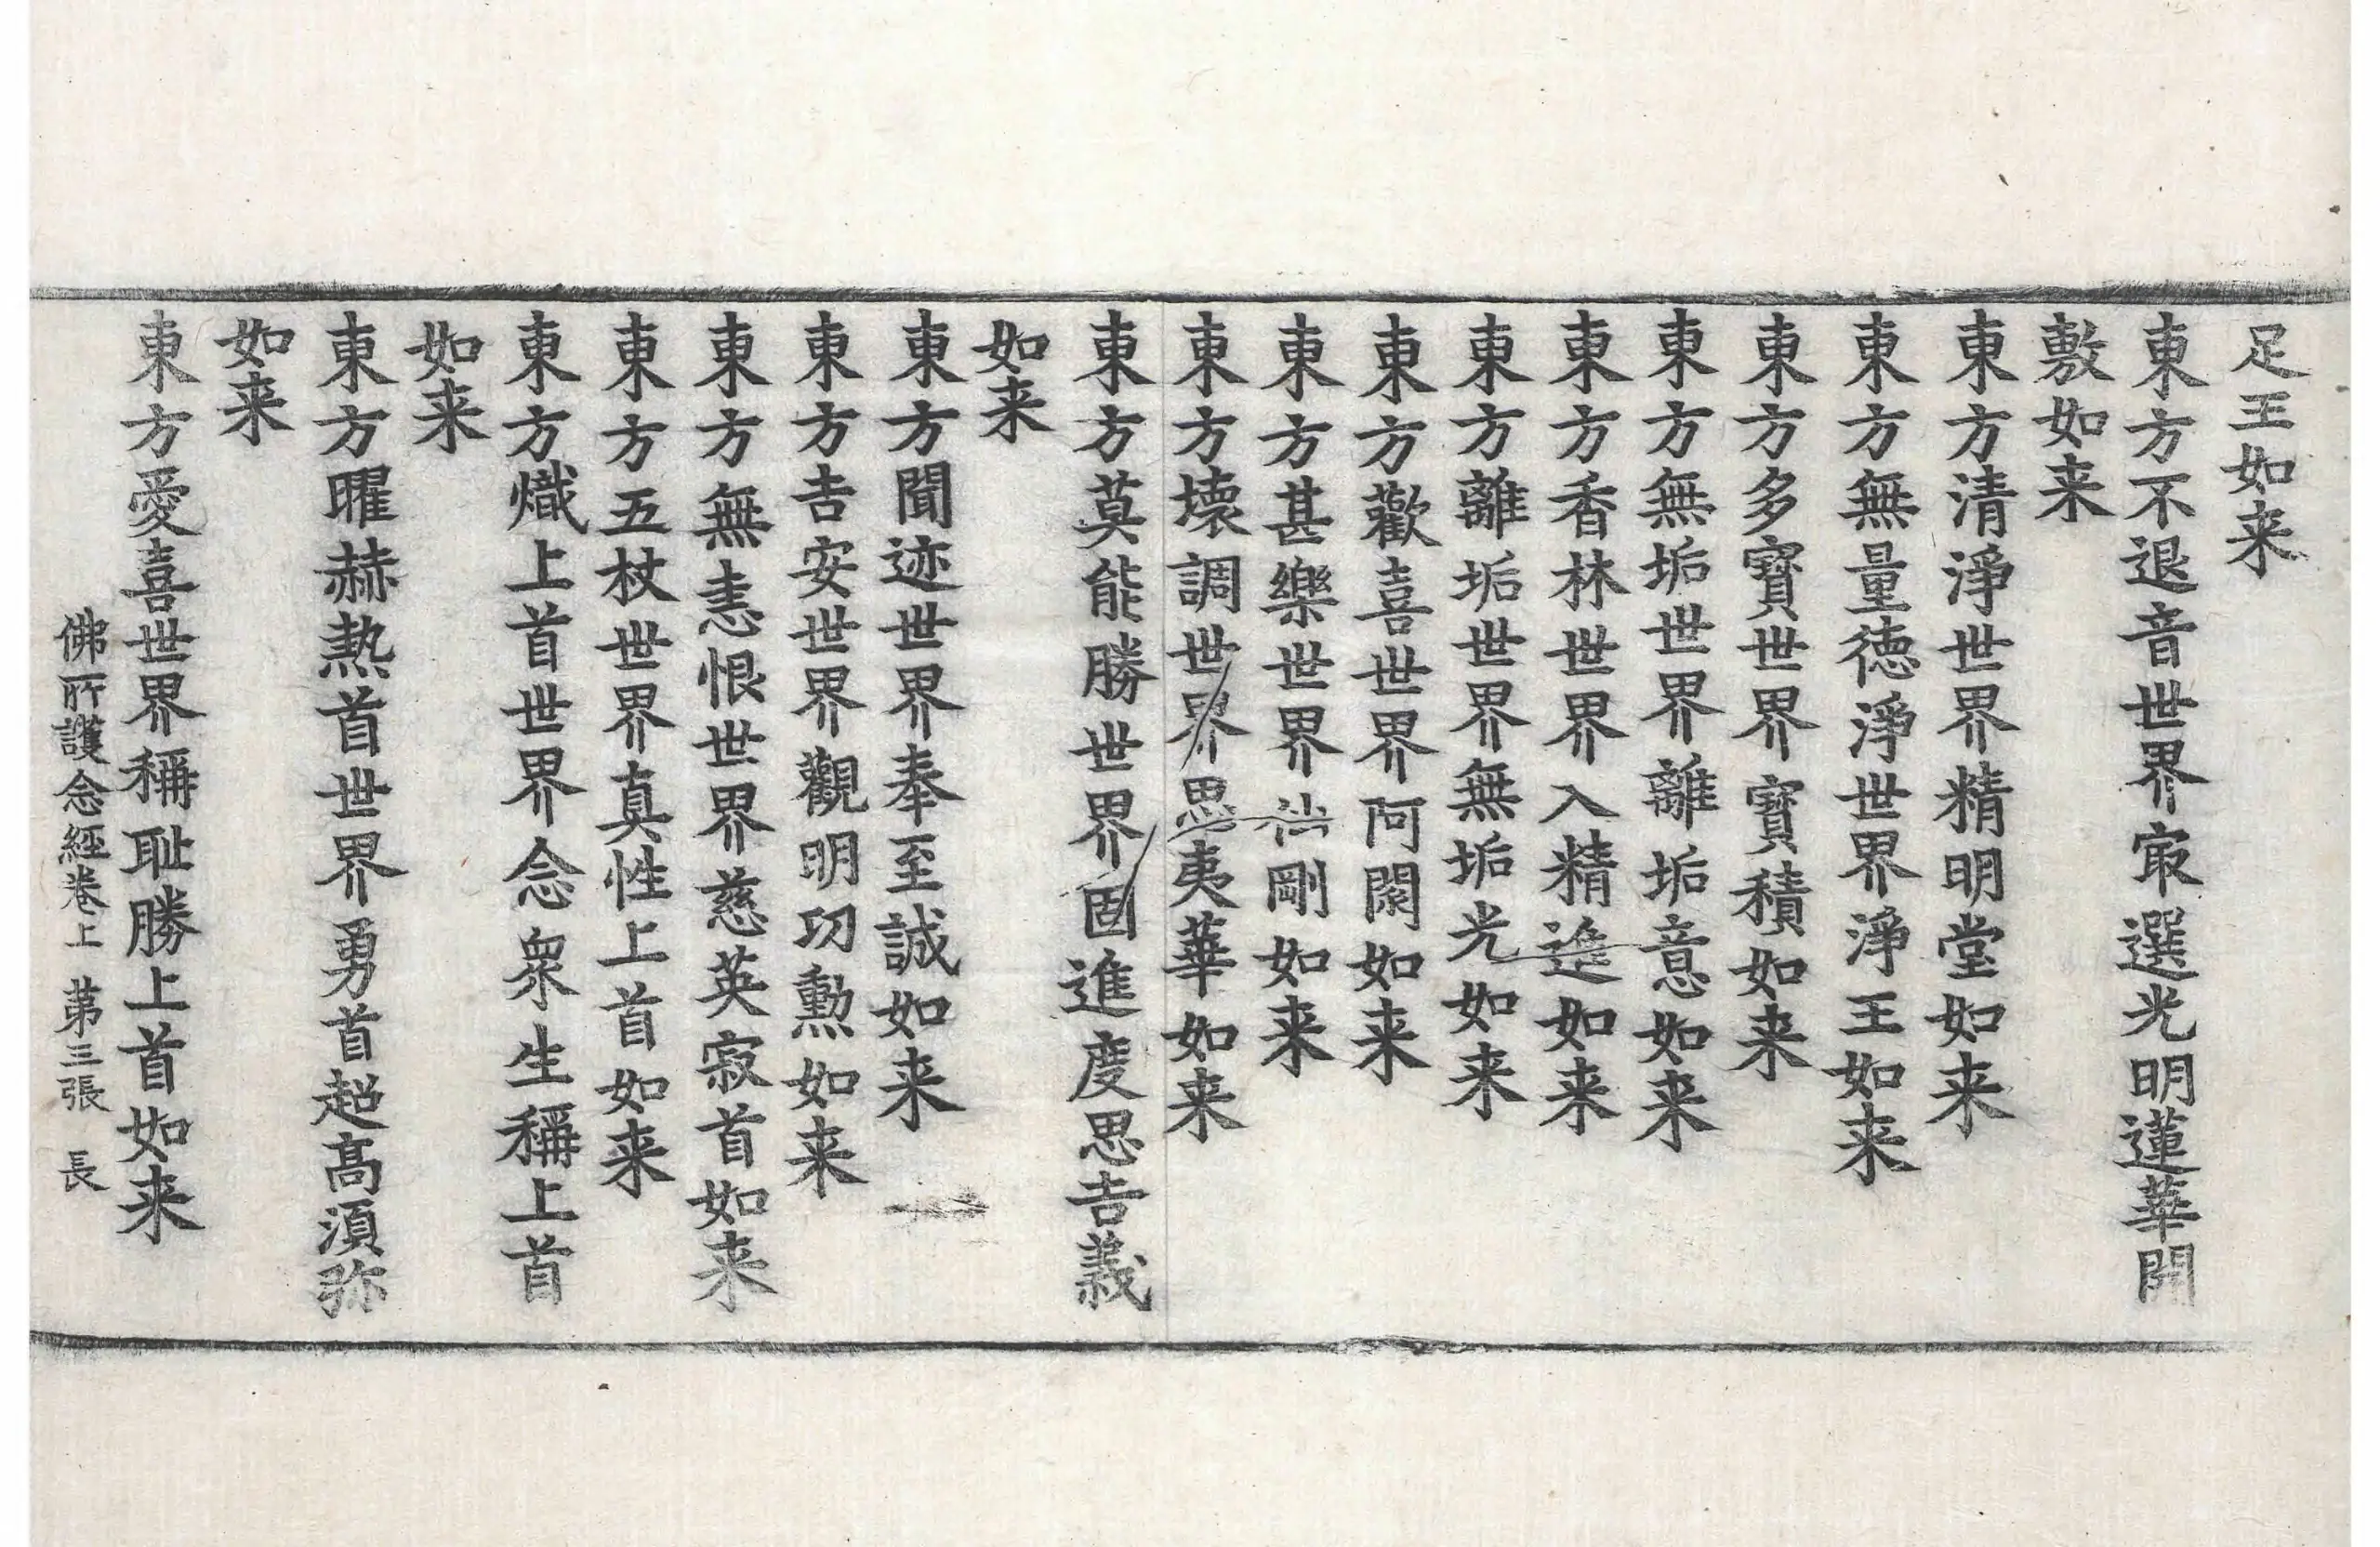 足王如来
東方不退音世界㝡選光明蓮華開
敷如来
東方清淨世界精明堂如来
東方無量德淨世界淨王如来
東方多寶世界寶積如来
東方無垢世界離垢意如来
東方香林世界入精進如来
東方離垢世界無垢光如来
東方歡喜世界阿閦如来
東方甚樂世界 剛如来
東方壞調世界思夷華如来
東方莫能勝世界固進度思吉義
如来
東方聞迹世界奉至誠如来
東方吉安世界觀明功勲如来
東方無恚恨世界慈英寂首如来
東方五杖世界真性上首如来
東方熾上首世界念衆生稱上首
如来
東方曜赫熱首世界勇首超高須弥
如来
東方愛喜世界稱耻勝上首如来
佛所護念經卷上 第三張 長